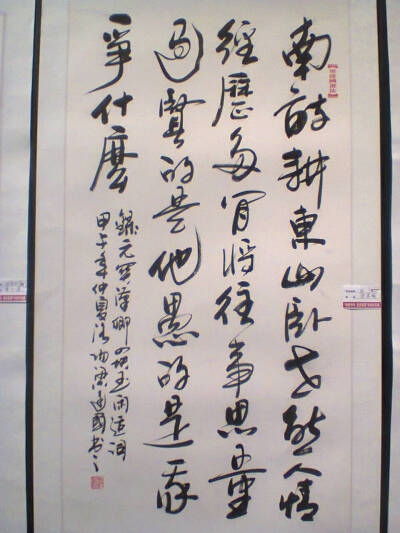 南畝耕東山卧世態人情
經歷多閒將往事思量
過賢的是他愚的是我
爭什麼
錄元關漢卿四塊玉閒適詞
甲午年仲夏國书